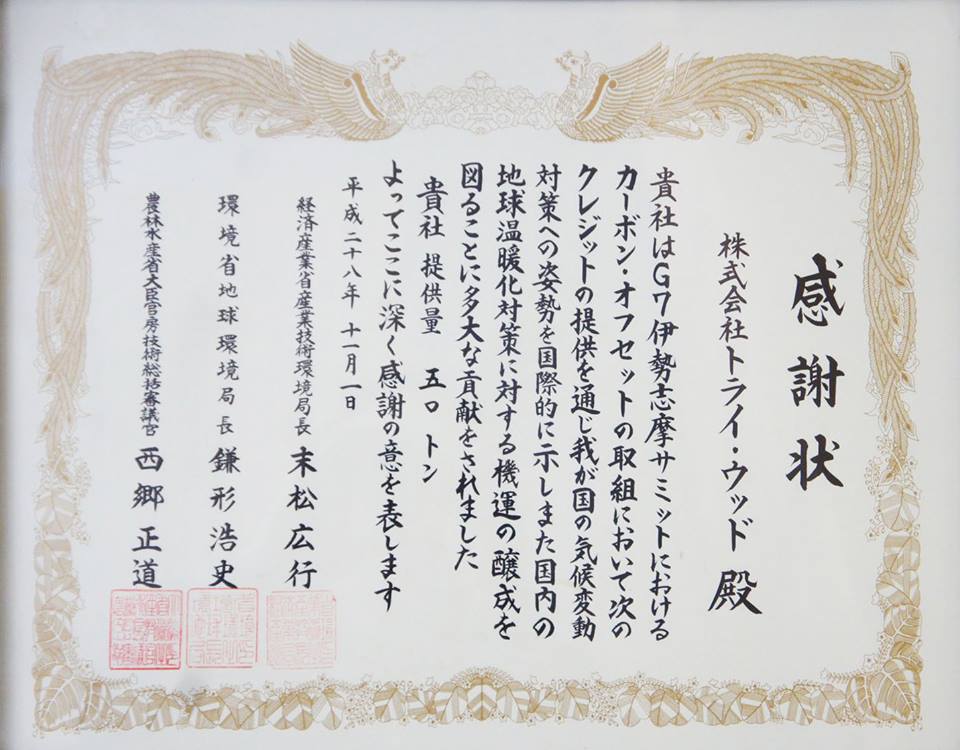 感謝状
株式会社トライ・ウッド 殿
貴社はG7伊勢志摩サミットにおける
カーボン・オフセットの取組において次の
クレジットの提供を通じ我が国の気候変動
対策への姿勢を国際的に示しまた国内の
地球温暖化対策に対する機運の醸成を
図ることに多大な貢献をされました
貴社 提供量 五〇 トン
よってここに深く感謝の意を表します
平成二十八年 十一月一日
経済産業省産業技術環境局長 末松広行
環境省地球環境局長 鎌形浩史
農林水産省大臣官房技術総括審議官 西郷正道